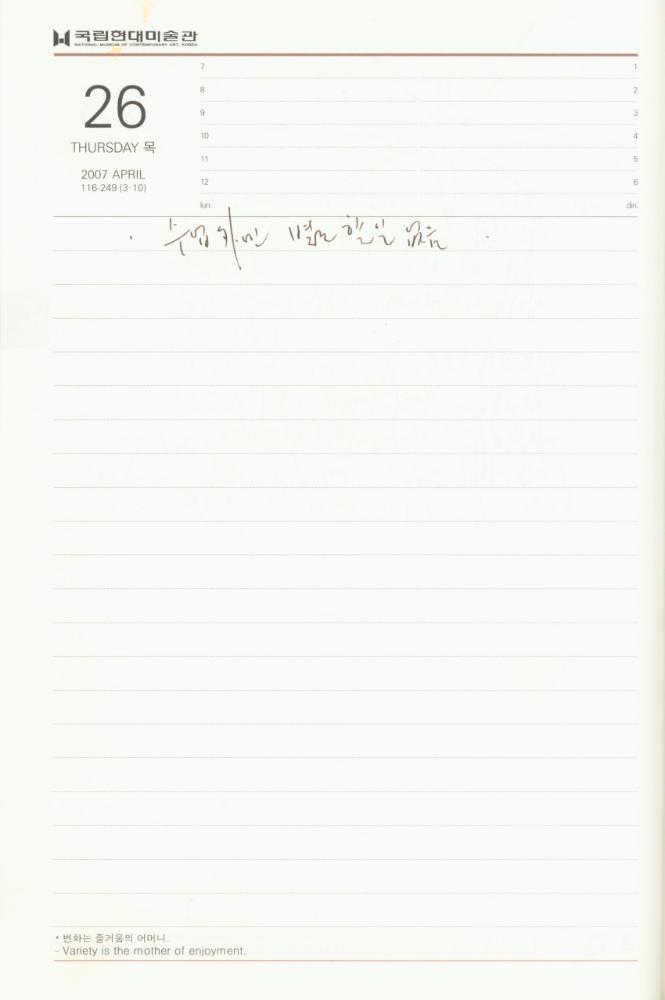 국립현대미술관
NATIONAL MUSEUM OF CONTEMPORARY ART, KOREA
26
THURSDAY 목
2007 APRIL
116-249 (3·10)
7 1
8 2
9 3
10 4
11 5
12 6
lun. din.
할일 없음
* 변화는 즐거움의 어머니.
- Variety is the mother of enjoyment.